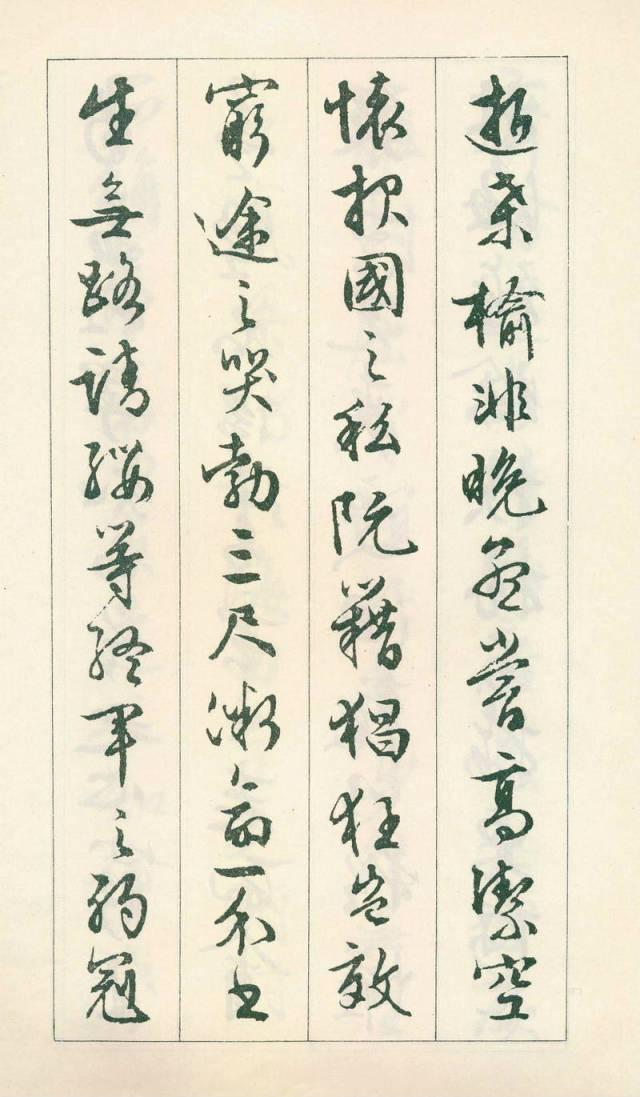 逝桑榆非晚孟嘗高潔空
懷报國之私阮籍猖狂豈效
窮途之哭勃三尺微命一介书
生無路請纓等終軍之弱冠